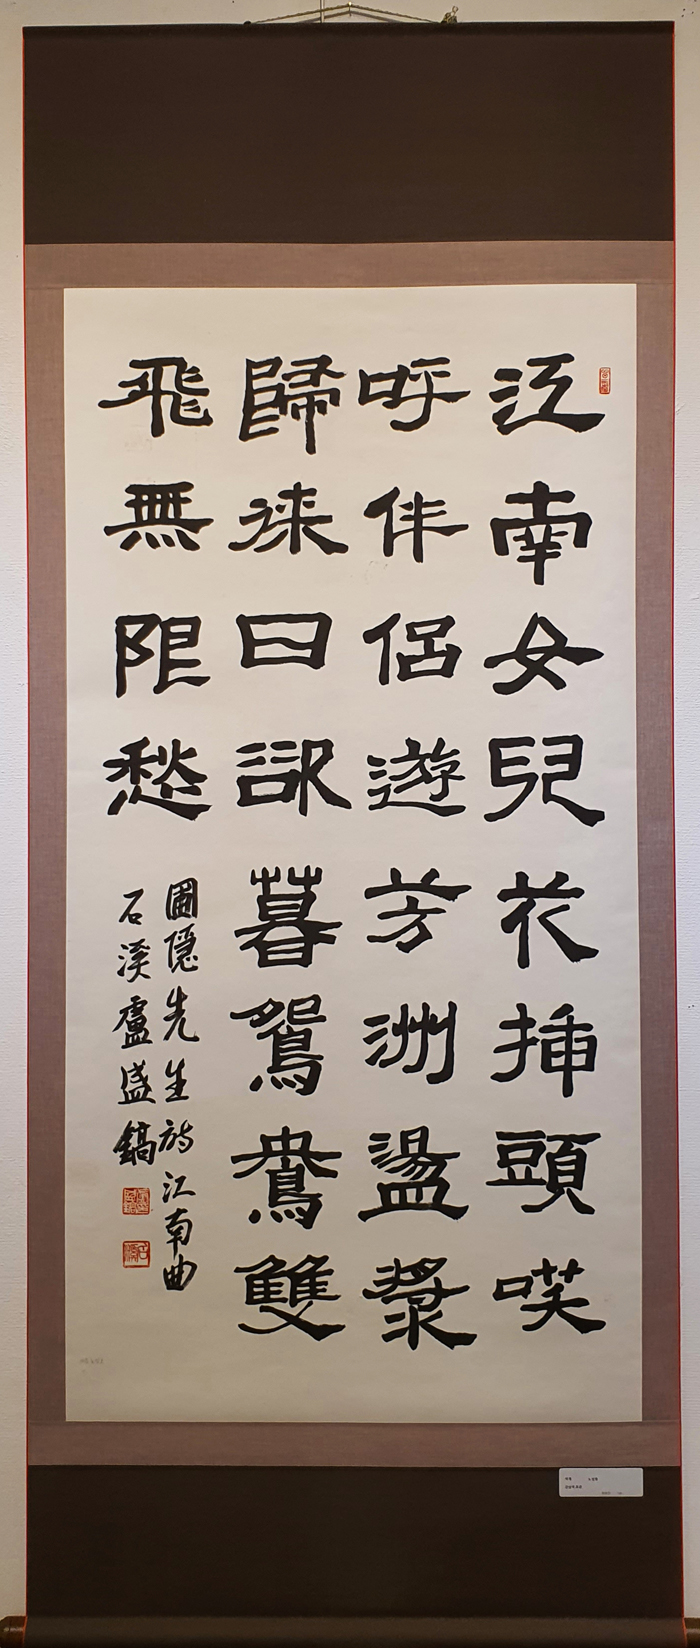 江南女兒花揷頭嘆
呼伴侶遊芳洲盪槳
歸来日欲暮鴛鴦雙
飛無限愁
圃隱先生詩江南曲
石溪盧盛鎬